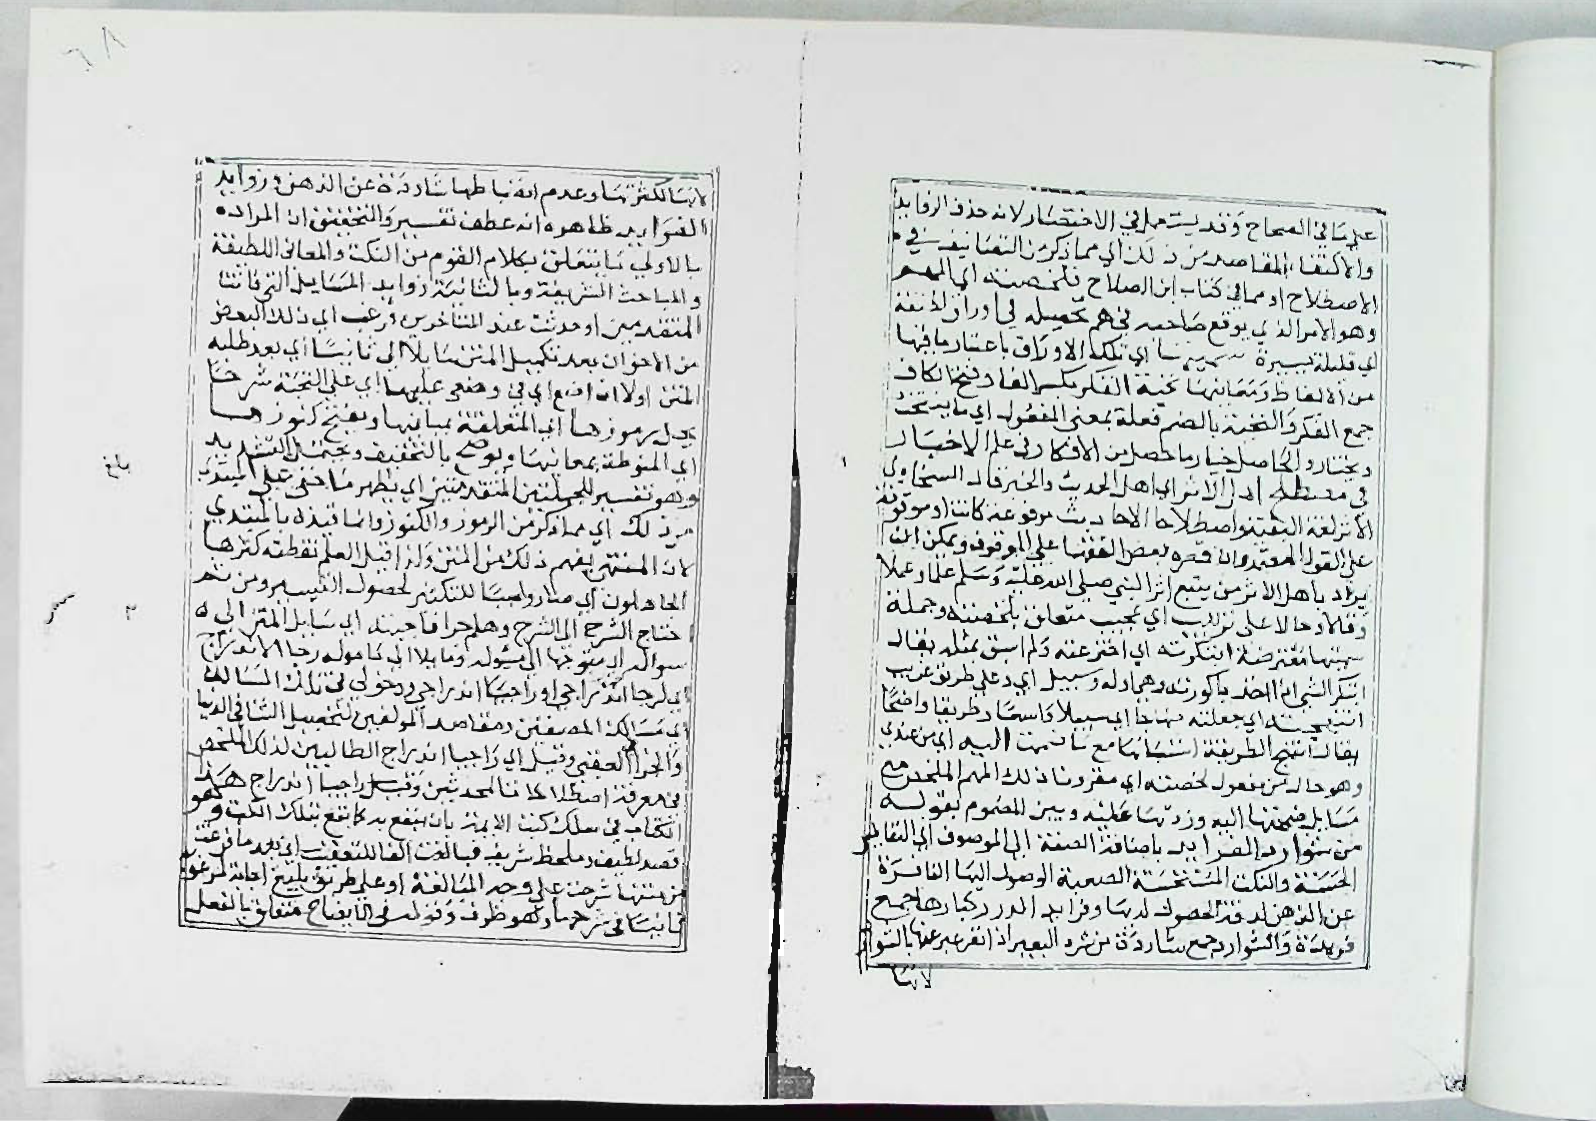 على ما في الصحاح وقد يستعمل في الاختصار لانه حذف الزوايد
والاكتفاء بالمقاصد من ذلك اي مما ذكر من التصانيف في
الاصطلاح او مما في كتاب ابن الصلاح فلخصته اي المهم
وهو الامر الذي يوقع صاحبه في هم تحصيله في اوراق لطيفة
اي قليلة يسيرة سميتها اي تلك الاوراق باعتبار ما فيها
من الالفاظ ومعانيها نخبة الفكر بكسر الفاء وفتح الكاف
جمع الفكر والنخبة بالضم فعلة بمعنى المفعول اي ما ينتخب
ويختار والحاصل خيار ما حصل من الافكار في علم الاخبار
في مصطلح اهل الاثر اي اهل الحديث والخبر قال السخاوي
الاثر لغة البقية واصطلاحا الاحاديث مرفوعة كانت او موقوفة
على القول المعتمد وان قصره بعض الفقهاء على الموقوف ويمكن ان
يراد باهل الاثر من يتبع اثر النبي صلى الله عليه وسلم علما وعملا
وقالا وحالا على ترتيب اي عجيب متعلق بلخصته وجملة
سميتها معترضة ابتكرته اي اخترعته ولم اسبق بمثله يقال
ابتكر الشي اذا اخذ باكورته وهي اوله وسبيل اي وعلى طريق غريب
انتهجته اي جعلته منهاجا اي سبيلا واسعا وطريقا واضحا
يقال انتهج الطريقة استبانها مع ما ضممت اليه اي من عندي
وهو حال من مفعول لخصته اي مقرونا ذلك المهم الملخص مع
مسايل ضممتها اليه وزدتها عليه وبين المضموم بقوله
من شوارد الفرايد باضافة الصفة الى الموصوف اي النفايس
الحسنة والنكت المستحسنة الصعبة الوصول اليها الفارة
عن الذهن لدقة الحصول لديها وفرايد الدرر كبارها جمع
فريدة والشوارد جمع شاردة من شرد البعير اذا نفر عبر عنها بالشوارد
لانها
لانها لكثرتها وعدم انضباطها شاردة عن الذهن وزوايد
الفوايد ظاهره انه عطف تفسير والتحقيق ان المراد
بالاولى ما يتعلق بكلام القوم من النكت والمعاني اللطيفة
والمباحث الشريفة وبالثانية زوايد المسايل التي فاتت
المتقدمين او حدثت عند المتاخرين فرغب الي ذلك البعض
من الاخوان بعد تكميل المتن سايلا الي ثانيا اي بعد طلبه
المتن اولا ان اضع اي في وضعي عليها اي على النخبة شرحا
يحل رموزها اي المتعلقة بمبانيها ويفتح كنوزها
اي المنوطة بمعانيها ويوضح بالتخفيف ويحتمل التشديد
وهو تفسير للجملتين المتقدمتين اي يظهر ما خفي على المبتدي
من ذلك اي مما ذكر من الرموز والكنوز وانما قيده بالمبتدي
لان المنتهي يفهم ذلك من المتن ولذا قيل العلم نقطة كثرها
الجاهلون اي صار واجبا للتكثير لحصول التيسير ومن ثم
احتاج الشرح الى الشرح وهلم جرا فاجبته اي سايل المتن الى
سواله اي متوجها الى مسوله ومايلا الى ماموله رجا الاندراج
اي لرجا اندراجي او راجيا اندراجي ودخولي في تلك المسالك
اي مسالك المصنفين ومقاصد المولفين لتحصيل الثنا في الدنيا
والجزا في العقبى وقيل اي راجيا اندراج الطالبين لذلك الملخص
في معرفة اصطلاحات المحدثين وقيل راجيا اندراج هذا
الكتاب في سلك كتب الايمة بان ينتفع به كما ينتفع بتلك الكتب وهو
قصد لطيف وملحظ شريف فبالغت الفا للتعقيب اي بعد ما فرغت
من متنها شرعت على وجه المبالغة او على طريق بليغ اجابة لمرغو
ثانيا في شرحها وهو ظرف وقوله في الايضاح متعلق بالفعل
بلغ
٢٨